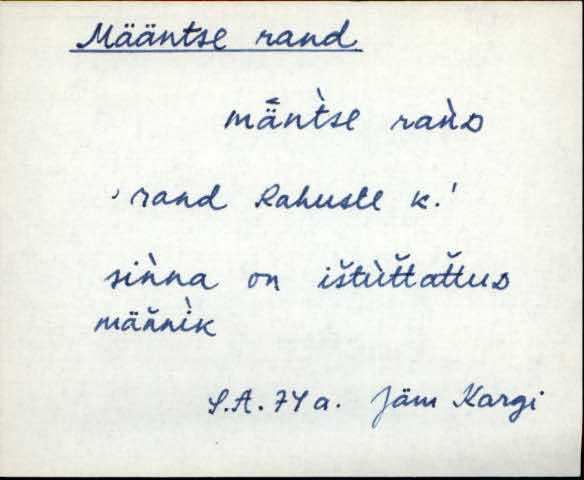 Määntse rand
mä̆ǹtse raǹᴅ
'rand Rahuste k.'
siǹna on ištùt̆tat̆tuᴅ
mäň̀nik
S.A. 74 a. Jäm Kargi